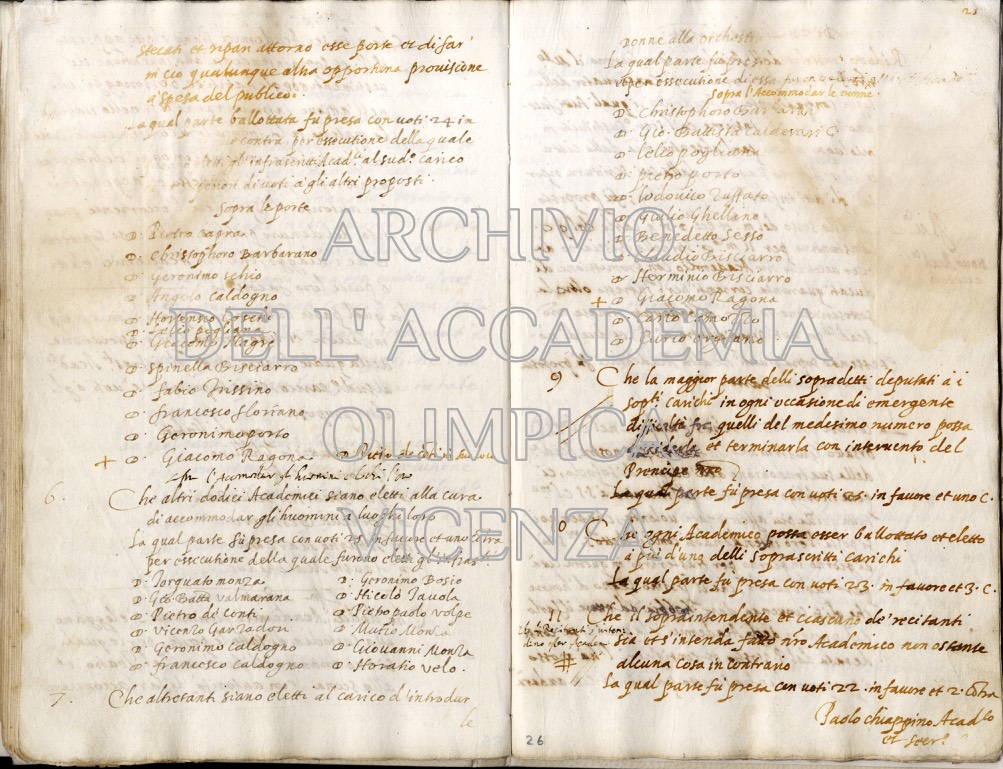 stecati et ripari attorno esse porte et di far
in ciò qualunque altra opportuna provisione
a spesa del publico.
La qual parte ballottata fù presa con voti 24 in
contra, per essecutione della quale
infrascritti Acad.ci al sud.o carico
di voti à gli altri proposti.
Sopra le porte
D. Pietro Capra
D. Christophoro Barbarano
D. Geronimo Schio
D. Angelo Caldogno
D. Hortensio
D. Lelio Pogliana
D. Giacomo Magrè
D. Spinella Bisciarro
D. Fabio Trissino
D. Francesco Floriano
D. Geronimo porto
+ D. Giacomo Ragona
D. Pietro de
l'Accomodar gl'huomini
6. Che altri dodici Academici siano eletti alla cura
di accommodar gli huomini a luoghi loro
La qual parte fù presa con voti 25 in favore et uno contra
per essecutione della quale furono eletti gl'infras.ti
D. Torquato monza
D. Gio. Batta valmarana
D. Pietro de conti
D. Vicenzo Garzadori
D. Geronimo caldogno
D. francesco caldogno
D. Geronimo Bosio
D. Nicolò Tavola
D. Pietro paolo volpe
D. Mutio Monza
D. Giovanni Monza
D. Horatio velo.
7. Che altretanti siano eletti al carico d'introdur
le
21
Donne alla orchestra
La qual parte fù presa
et per essecutione di essa furon
Sopra l'Accommodar le donne.
D. Christophoro Barbaran
D. Gio. Battista Calderari C
D. Lelio pogliana
D. pietro porto
D. lodovico Zuffato
D. Giulio Ghellino
D. Benedetto Sesso
D. Claudio Bisciarro
D. Herminio Bisciarro
+ D. Giacomo Ragona
D.
D. Curio
9 Che la maggior parte delli sopradetti deputati à i
sop.ti carichi in ogni occasione di emergente
difficultà fra quelli del medesimo numero possa
et terminarla con intervento del
Prencipe
La qual parte fù presa con voti 25. in favore et uno C.
0 Che ogni Academico possa esser ballottato et eletto
à più d'uno delli soprascritti carichi
La qual parte fù presa con voti 23. in favore et 3. C.
11 Che il sopraintendente et ciascuno de' recitanti
sia et s'intenda fatto nro Academico non ostante
alcuna cosa in contrario
La qual parte fù presa con voti 22. in favore et 2. contra
Paolo chiappino Acad.co
et secr.o
26
ARCHIVIO
DELL' ACCADEMIA
OLIMPICA
VICENZA